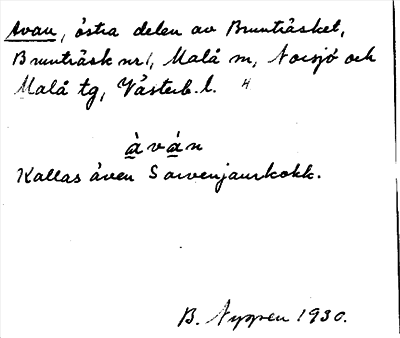 Avan, östra delen av Brunträsket,
Brunträsk nr 1, Malå sn, Norsjö och
Malå tg, Västerb. l. H
àván
Kallas även Sarvenjaurkokk.
B. Nyppen 1930.